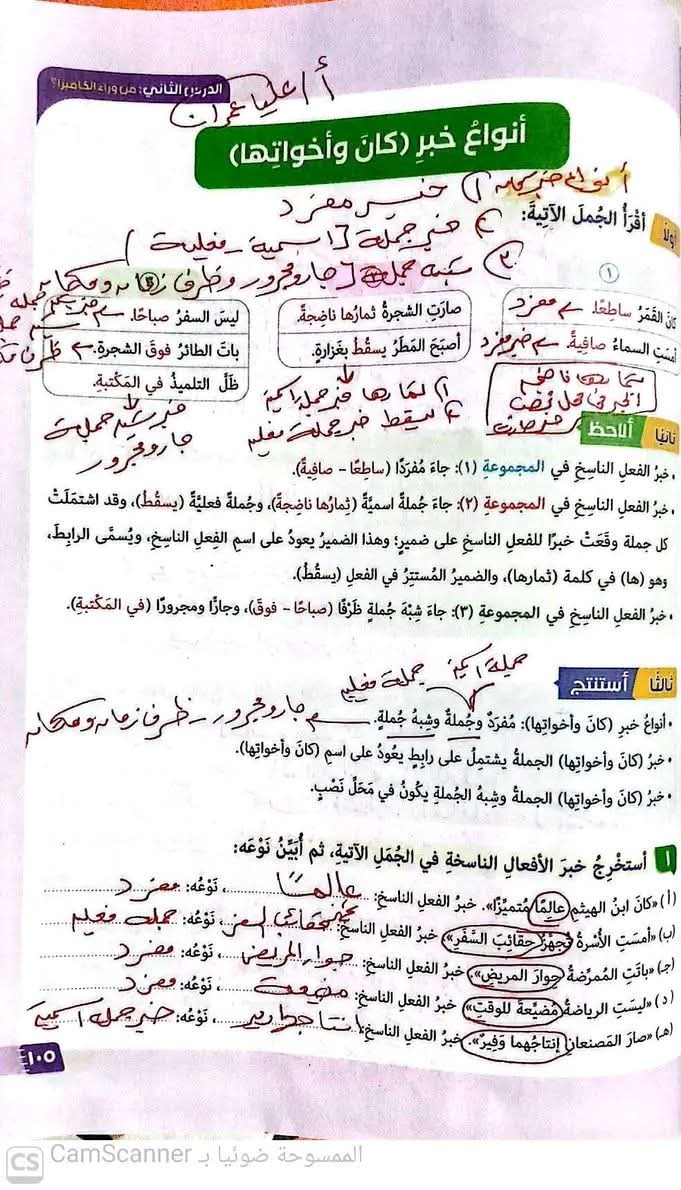 الدرس الثاني: من وراء الكاميرا؟
أ/ علياء عمران
أنواعُ خبرِ (كانَ وأخواتِها)
أنواع خبر كان ١) خبر مفرد
أولًا أقْرَأُ الجُملَ الآتيةَ:
٢) خبر جملة [اسمية - فعلية]
٣) شبه جملة [جار ومجرور وظرف زمان ومكان
١
كانَ القَمَرُ ساطِعًا. خبر مفرد
أمسَتِ السماءُ صافِيةً. خبر مفرد
صارَتِ الشجرةُ ثمارُها ناضِجةٌ.
أصبَحَ المَطَرُ يسقُطُ بغَزارةٍ.
ليسَ السفرُ صباحًا.
باتَ الطائرُ فوقَ الشجرةِ. ظرف مكان
ظَلَّ التلميذُ في المَكْتبةِ.
ثمارها ناضجة
الخبر في محل نصب
خبر صارت
١) ثمارها خبر جملة اسمية
٢) يسقط خبر جملة فعلية
خبر شبه جملة
جار ومجرور
ثانيًا ألاحظ
• خبرُ الفعلِ الناسِخِ في المجموعةِ (١): جاءَ مُفرَدًا (ساطِعًا – صافِيةً).
• خبرُ الفعلِ الناسِخِ في المجموعةِ (٢): جاءَ جُملةً اسميَّةً (ثِمارُها ناضِجةٌ)، وجُملةً فعليَّةً (يسقُطُ)، وقد اشتمَلَتْ
كل جملة وقَعَتْ خبرًا للفعلِ الناسخِ على ضميرٍ؛ وهذا الضميرُ يعودُ على اسمِ الفِعلِ الناسخِ، ويُسمَّى الرابِطَ،
وهو (ها) في كلمة (ثمارها)، والضميرُ المُستتِرُ في الفعلِ (يسقُطُ).
• خبرُ الفعلِ الناسِخِ في المجموعةِ (٣): جاءَ شِبْهَ جُملةٍ ظَرْفًا (صباحًا – فوقَ)، وجارًّا ومجرورًا (في المَكتبةِ).
جملة اسمية جملة فعلية
ثالثًا أستنتج
• أنواعُ خبرِ (كانَ وأخواتِها): مُفرَدٌ وجُملةٌ وشِبهُ جُملةٍ. جار ومجرور - ظرف زمان ومكان
• خبرُ (كانَ وأخواتِها) الجملةُ يشتمِلُ على رابِطٍ يعُودُ على اسمِ (كانَ وأخواتِها).
• خبرُ (كانَ وأخواتِها) الجملةُ وشِبهُ الجُملةِ يكُونُ في مَحَلِّ نَصْبٍ.
١ أستخْرِجُ خبرَ الأفعالِ الناسخةِ في الجُمَلِ الآتيةِ، ثم أُبَيِّنُ نَوْعَه:
(أ) «كانَ ابنُ الهيثمِ عالِمًا مُتميِّزًا». خبرُ الفعلِ الناسخِ: عالمًا، نَوْعُه: مفرد
(ب) «أمسَتِ الأُسْرةُ تُجهِّزُ حقائِبَ السَّفَرِ». خبرُ الفعلِ الناسخِ: تجهز حقائب السفر، نَوْعُه: جملة فعلية
(جـ) «باتَتِ المُمرِّضةُ جِوارَ المريضِ». خبرُ الفعلِ الناسخِ: جوار المريض، نَوْعُه: مفرد
(د) «ليسَتِ الرياضةُ مُضيِّعةً للوقتِ» خبرُ الفعلِ الناسخِ: مضيعة، نَوْعُه: مفرد
(هـ) «صارَ المَصنعانِ إنتاجُهما وَفِيرٌ». خبرُ الفعلِ الناسخِ: إنتاجهما وفير، نَوْعُه: خبر جملة اسمية
١٠٥
CS CamScanner الممسوحة ضوئيا بـ